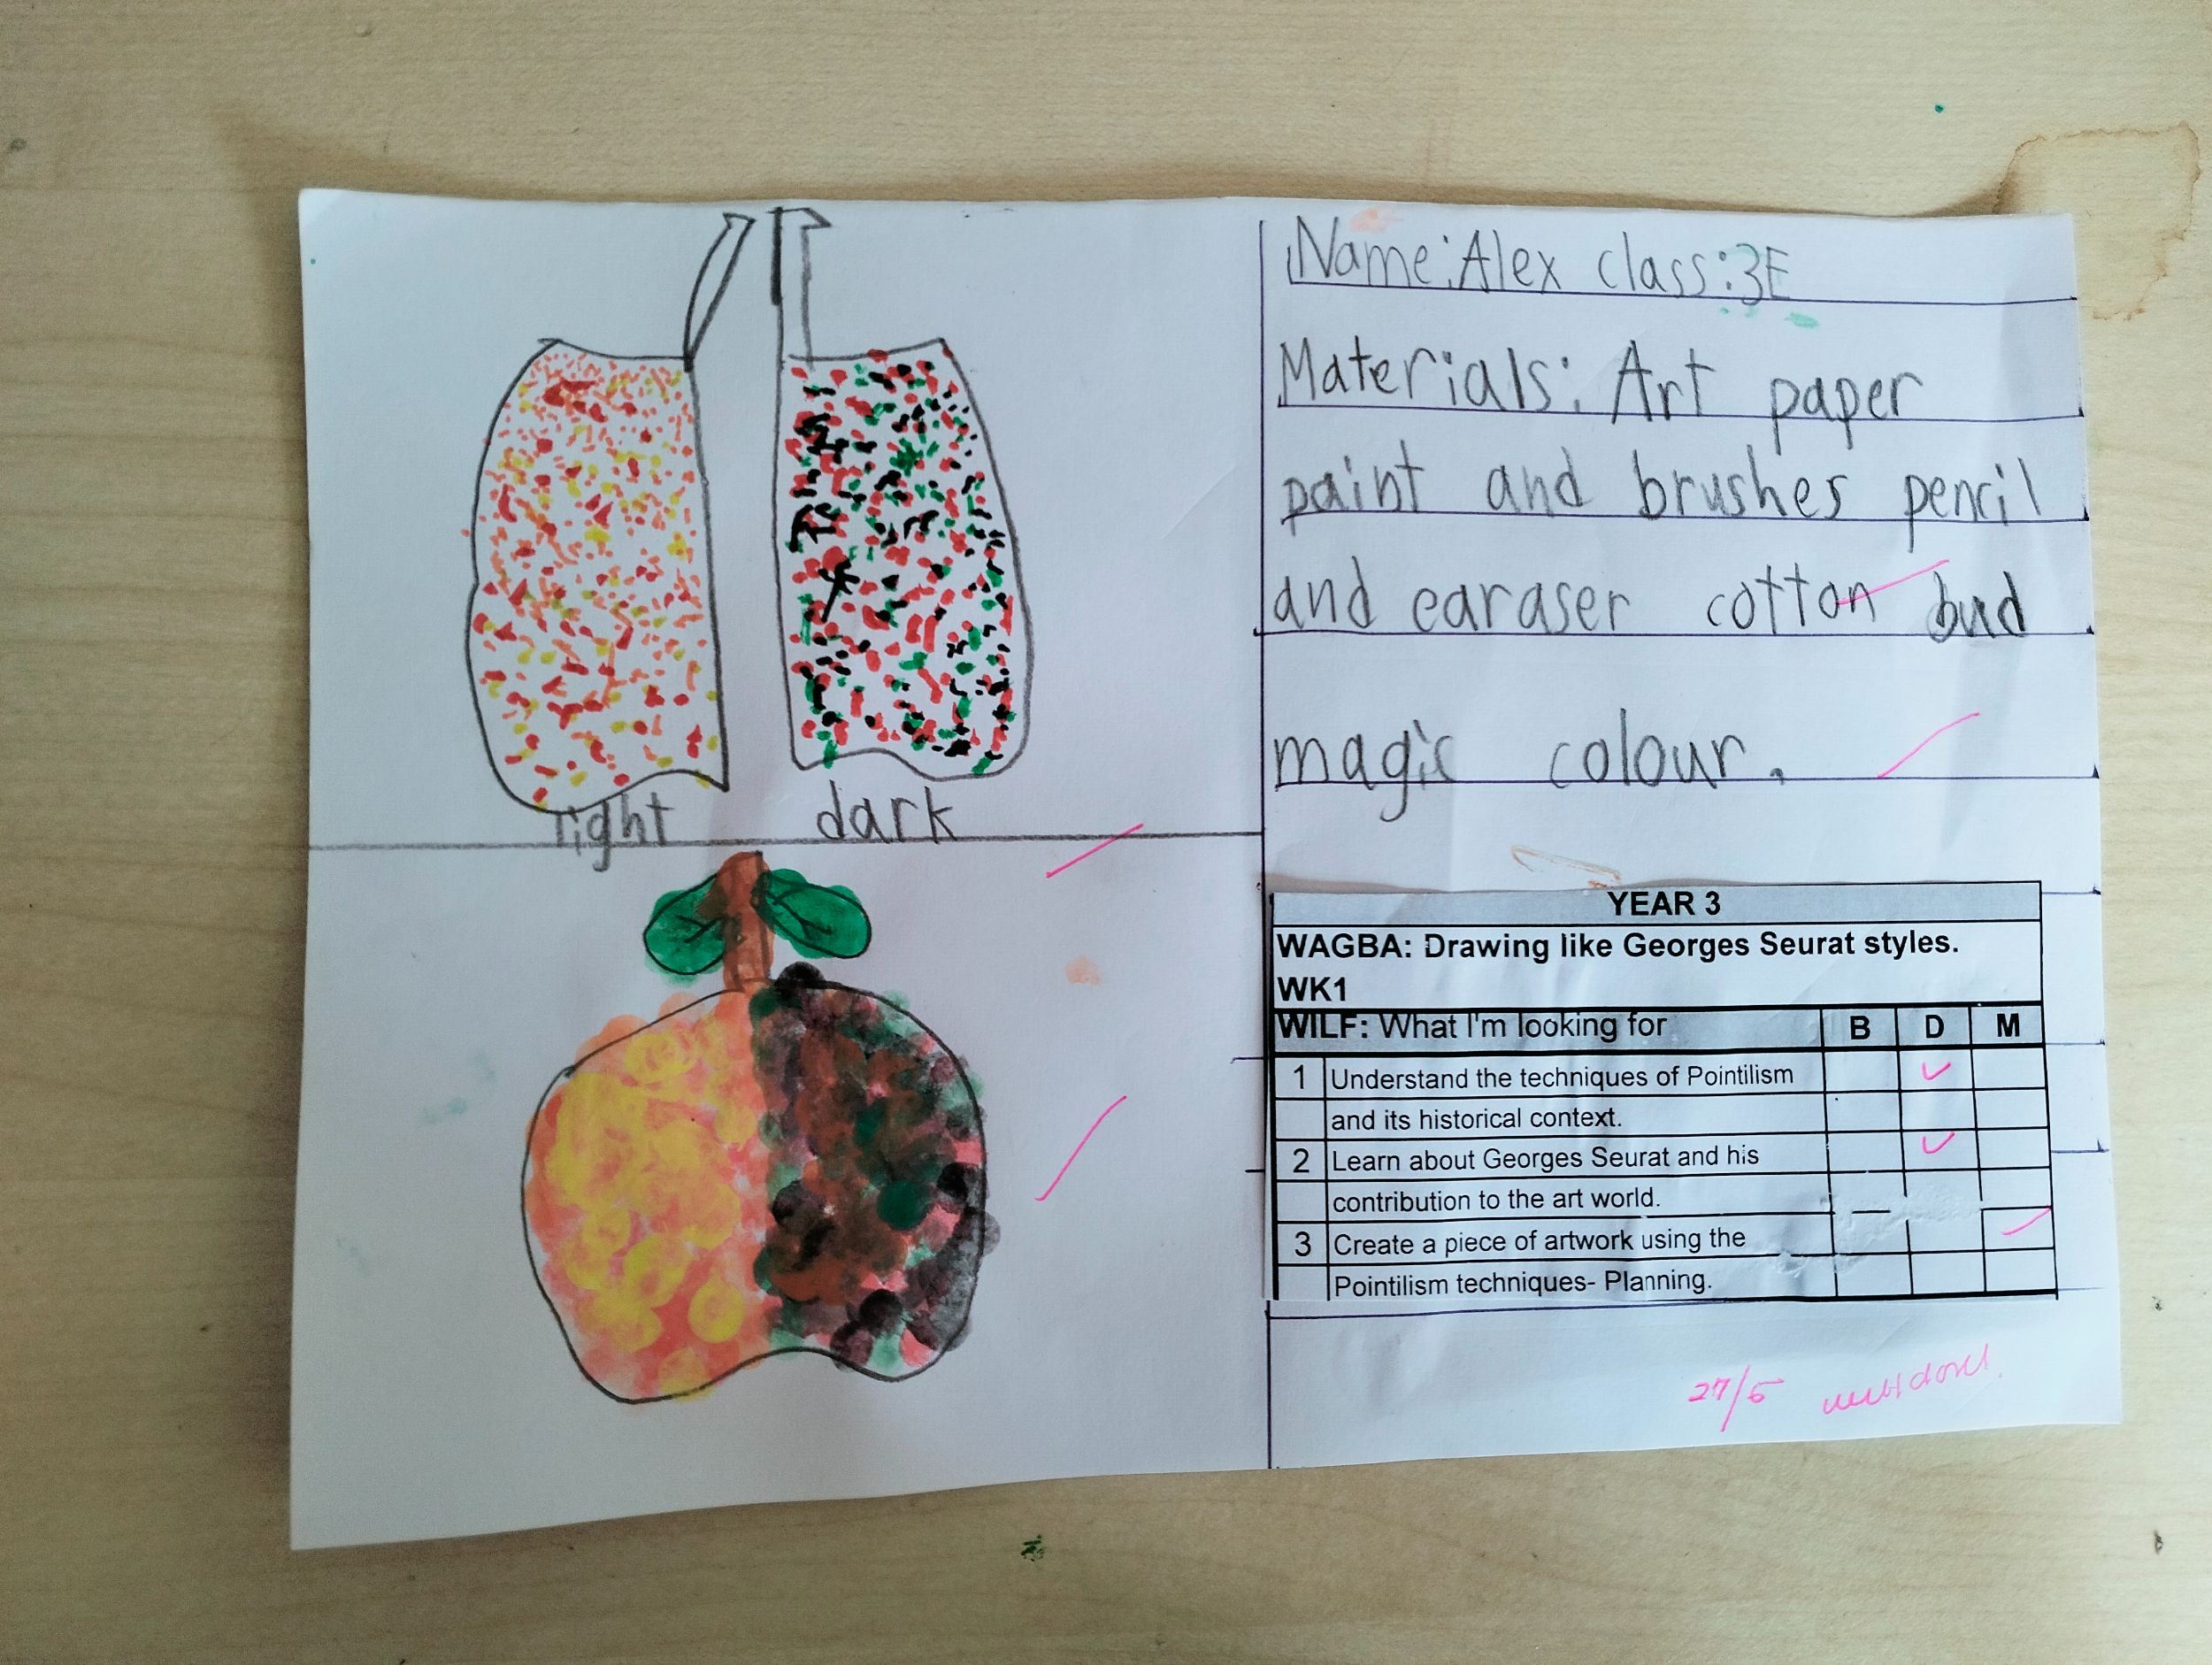 light dark
Name: Alex class: 3E
Materials: Art paper
paint and brushes pencil
and earaser cotton bud
magic colour.
YEAR 3
WAGBA: Drawing like Georges Seurat styles.
WK1
WILF: What I'm looking for B D M
1 Understand the techniques of Pointilism
and its historical context.
2 Learn about Georges Seurat and his
contribution to the art world.
3 Create a piece of artwork using the
Pointilism techniques- Planning.
27/5 well done!